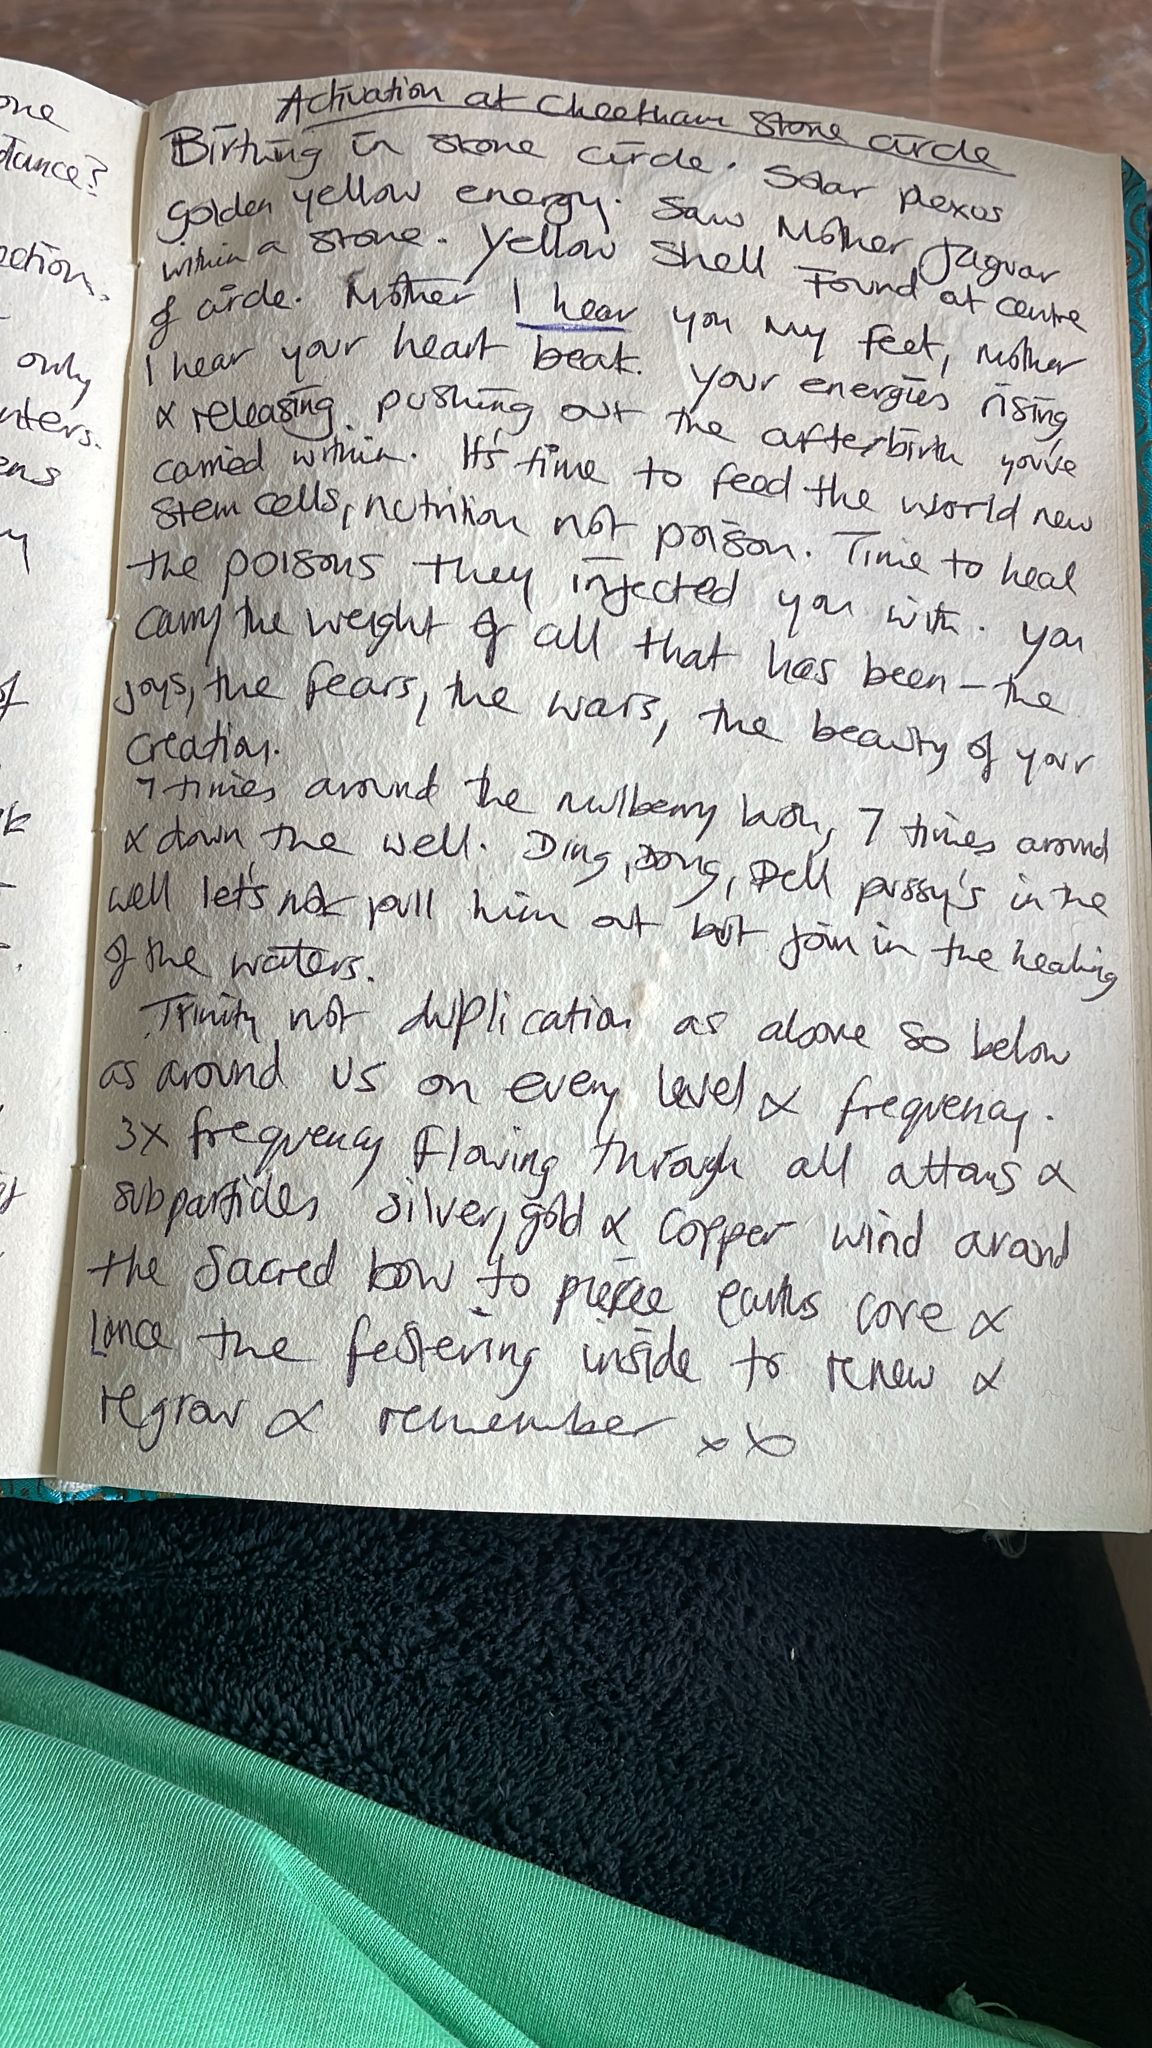 one
dance?
nction.
only
nters.
ens
y
of
Activation at Cheetham Stone circle
Birthing in stone circle. Solar plexus
golden yellow energy. Saw Mother Jaguar
within a stone. Yellow Shell Found at centre
of circle. Mother I hear you my feet, Mother
I hear your heart beat. Your energies rising
& releasing pushing out the afterbirth you've
carried within. It's time to feed the world new
stem cells, nutrition not poison. Time to heal
the poisons they injected you with. You
carry the weight of all that has been – the
joys, the fears, the wars, the beauty of your
creation.
7 times around the mulberry bush, 7 times around
& down the well. Ding, Dong, Dell pussy's in the
well let's not pull him out but join in the healing
of the waters.
Trinity not duplication as above so below
as around us on every level & frequency.
3x frequency flowing through all attoms &
subparticles silver, gold & copper wind around
the Sacred bow to pierce earths core &
lance the festering inside to renew &
regrow & remember xx